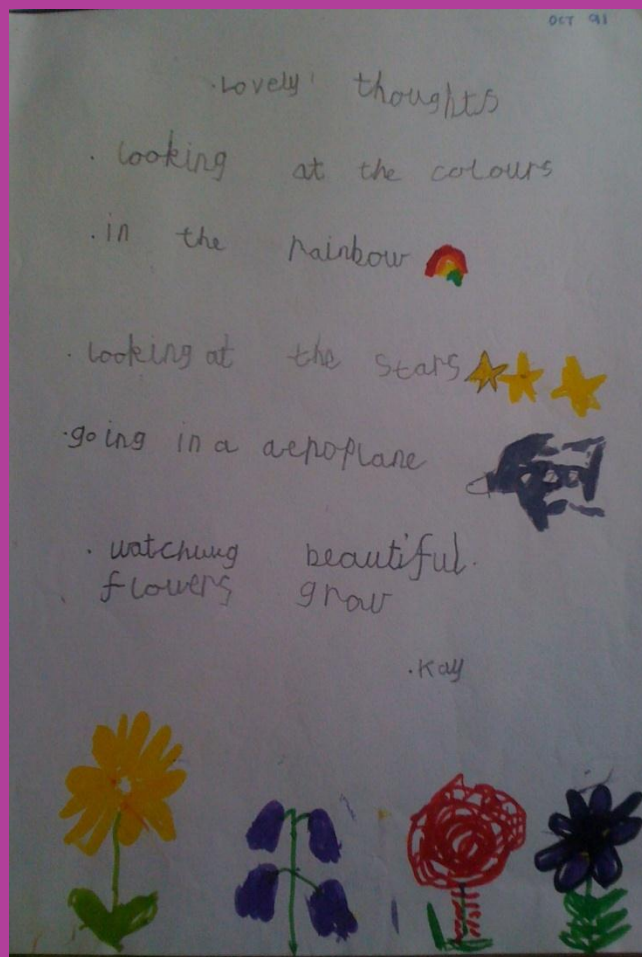 OCT 91
Lovely thoughts
. looking at the colours
. in the rainbow
. looking at the stars
. going in a aeroplane
. watching beautiful.
flowers grow
. Kay